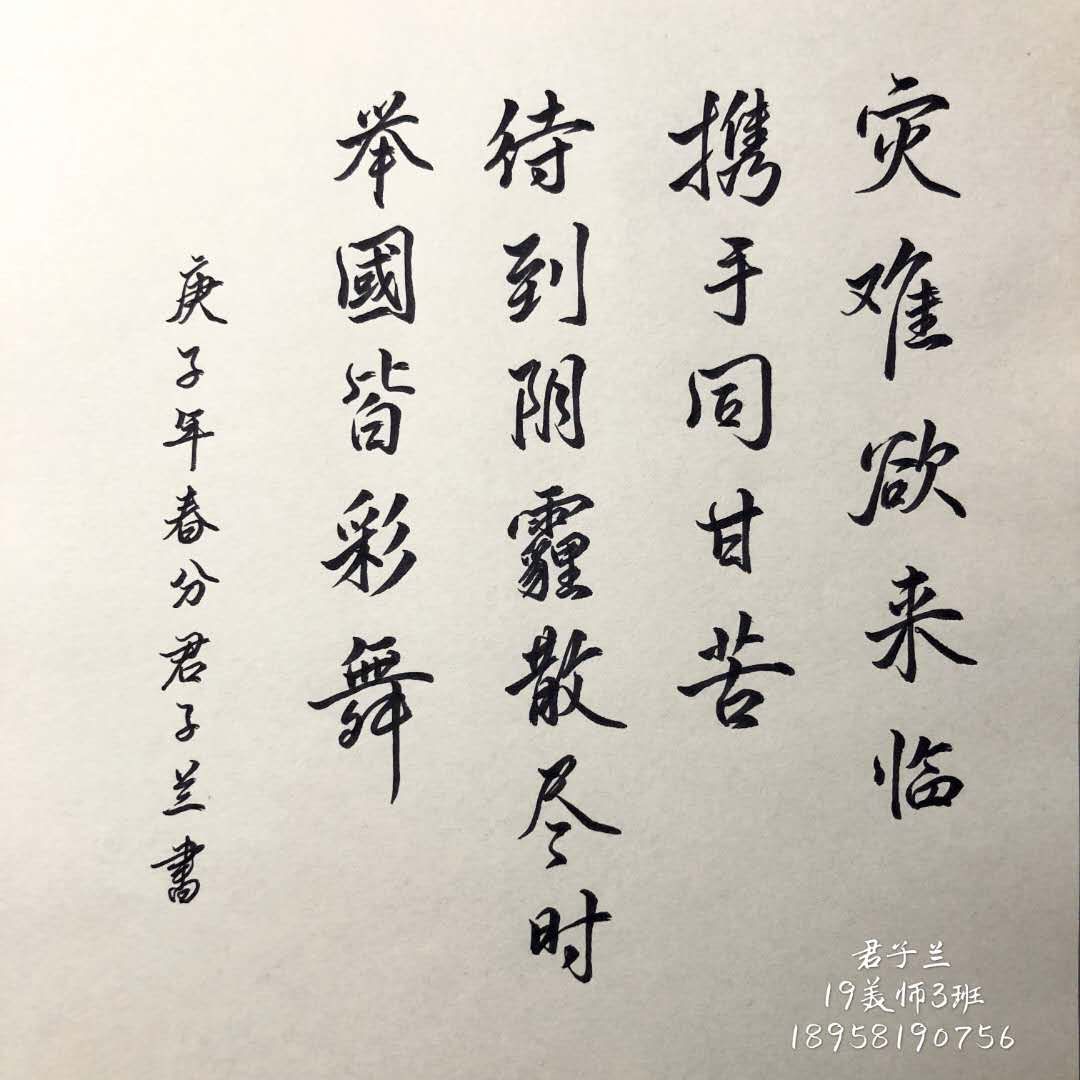 灾难欲来临
携手同甘苦
待到阴霾散尽时
举國皆彩舞
庚子年春分君子兰書
君子兰
19美师3班
18958190756